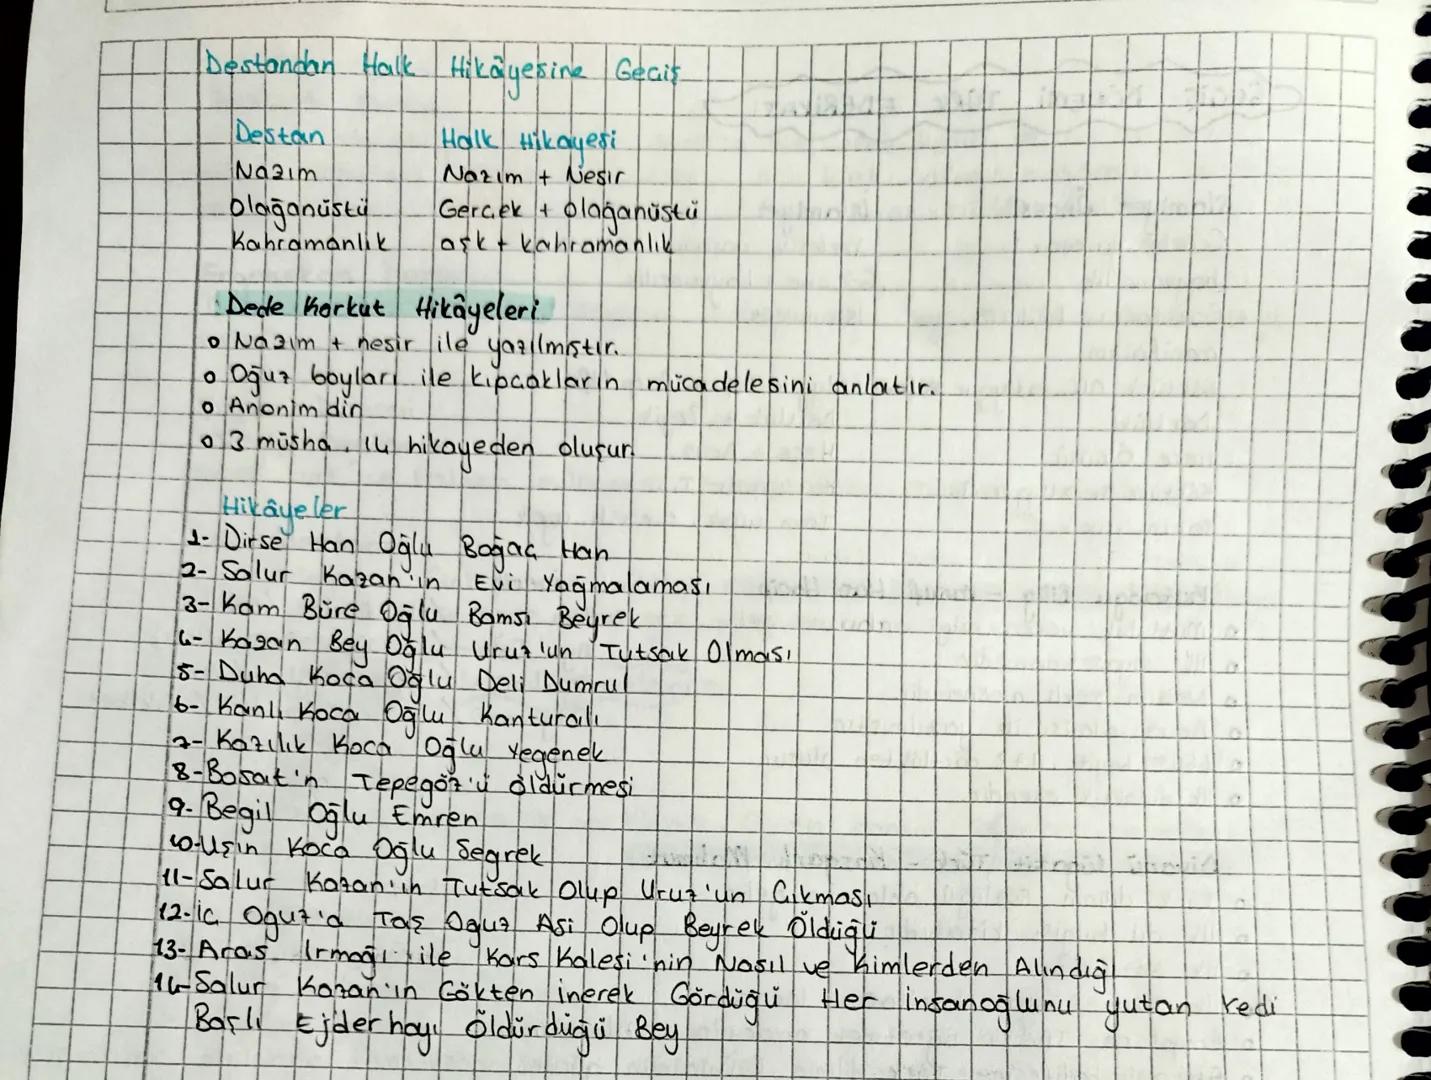 Destandan Halk Hikâyesine Geçiş
Destan Halk Hikayesi
Nazım Nazım + Nesir
Olağanüstü Gerçek + Olağanüstü
Kahramanlık aşk + kahramanlık
Dede Korkut Hikâyeleri
o Nazım + nesir ile yazılmıştır.
o Oğuz boyları ile kıpcakların mücadelesini anlatır.
o Anonimdir
o 3 müsha, 14 hikayeden oluşur.
Hikâyeler
1- Dirse Han Oğlu Boğaç Han
2- Salur Kazan'ın Evi Yağmalaması
3- Kam Büre Oğlu Bamsı Beyrek
4- Kazan Bey Oğlu Uruz'un Tutsak Olması
5- Duha Koca Oğlu Deli Dumrul
6- Kanlı Koca Oğlu Kanturalı
7- Kazılık Koca Oğlu Yegenek
8- Basat'ın Tepegöz'ü öldürmesi
9- Begil Oğlu Emren
10- Uşin Koca Oğlu Segrek
11- Salur Kazan'ın Tutsak Olup Uruz'un Çıkması
12- İç Oguz'a Taş Oguz Asi Olup Beyrek Öldüğü
13- Aras Irmağı ile Kars Kalesi'nin Nasıl ve Kimlerden Alındığı
14- Salur Kazan'ın Gökten inerek Gördüğü Her insanoğlunu yutan Yedi
Başlı Ejderhayı Öldürdüğü Bey